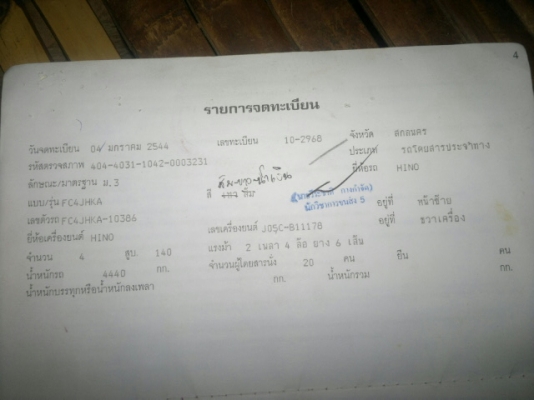 4
รายการจดทะเบียน
วันจดทะเบียน 04 มกราคม 2544 เลขทะเบียน 10-2968 จังหวัด สกลนคร
รหัสตรวจสภาพ 404-4031-1042-0003231 ประเภท รถโดยสารประจำทาง
ลักษณะ/มาตรฐาน ม.3 สี ยี่ห้อรถ HINO
แบบ/รุ่น FC4JHKA
เลขตัวรถ FC4JHKA-10386 อยู่ที่ หน้าซ้าย
ยี่ห้อเครื่องยนต์ HINO เลขเครื่องยนต์ J05C-B11178 อยู่ที่ ขวาเครื่อง
จำนวน 4 สูบ 140 แรงม้า 2 เพลา 4 ล้อ ยาง 6 เส้น
น้ำหนักรถ 4440 กก. จำนวนผู้โดยสารนั่ง 20 คน ยืน คน
น้ำหนักบรรทุกหรือน้ำหนักลงเพลา กก. น้ำหนักรวม กก.